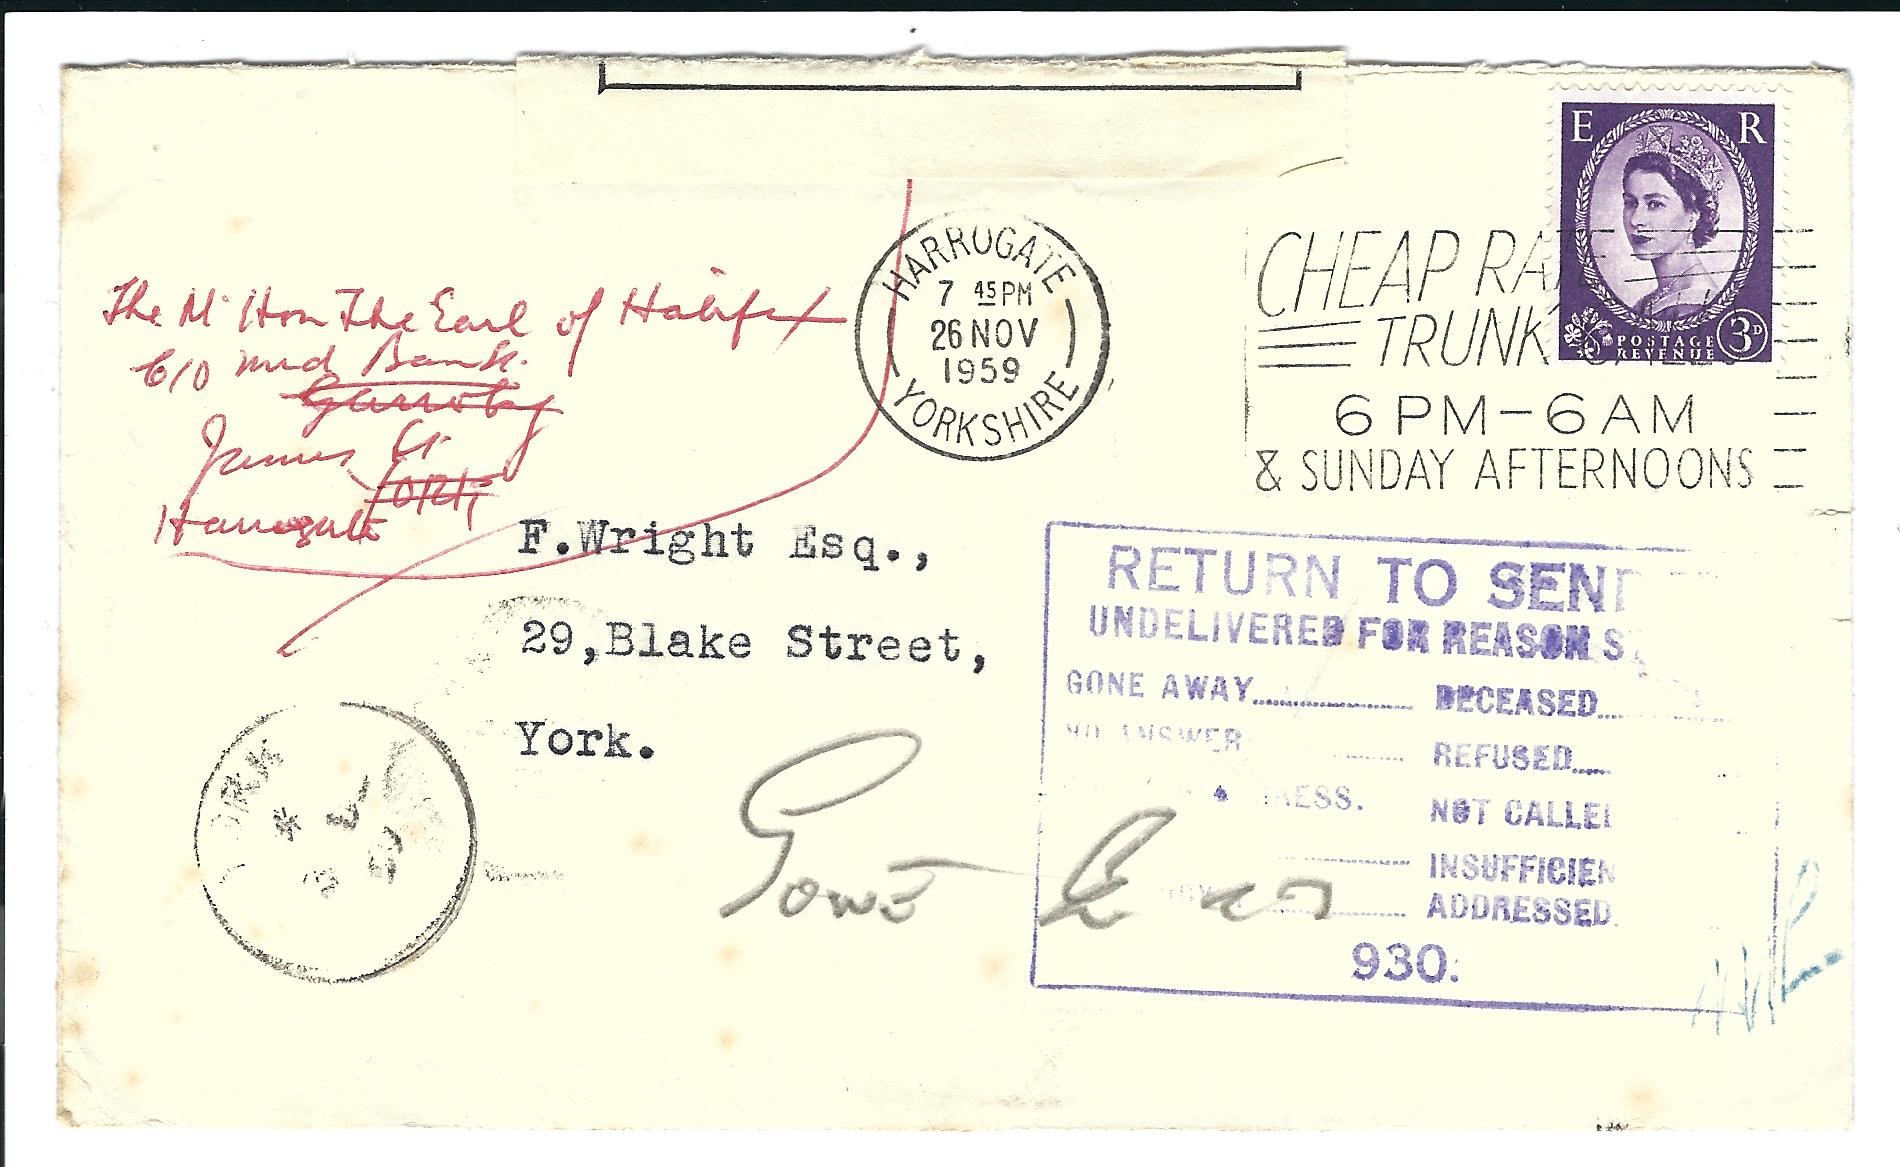 E R
POSTAGE
REVENUE
3D
HARROGATE
7 45 PM
26 NOV
1959
YORKSHIRE
CHEAP RA
TRUNK
6 PM-6 AM
& SUNDAY AFTERNOONS
The Rt Hon The Earl of Halifax
C/O Mid Bank.
Garroby
James St
YORK
Harrogate
F.Wright Esq.,
29,Blake Street,
York.
YORK
Gone
RETURN TO SEND
UNDELIVERED FOR REASON S
GONE AWAY DECEASED
NO ANSWER REFUSED
RESS. NOT CALLE
INSUFFICIEN
ADDRESSED.
930.